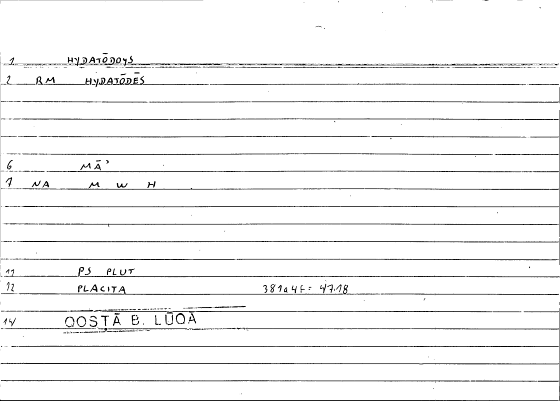 1 HYDATŌDOYS
2 RM HYDATŌDĒS
6 MĀʾ
7 NA M W H
11 PS PLUT
12 PLACITA 381a4f= 47.18
14 QOSṬĀ B. LŪQĀ